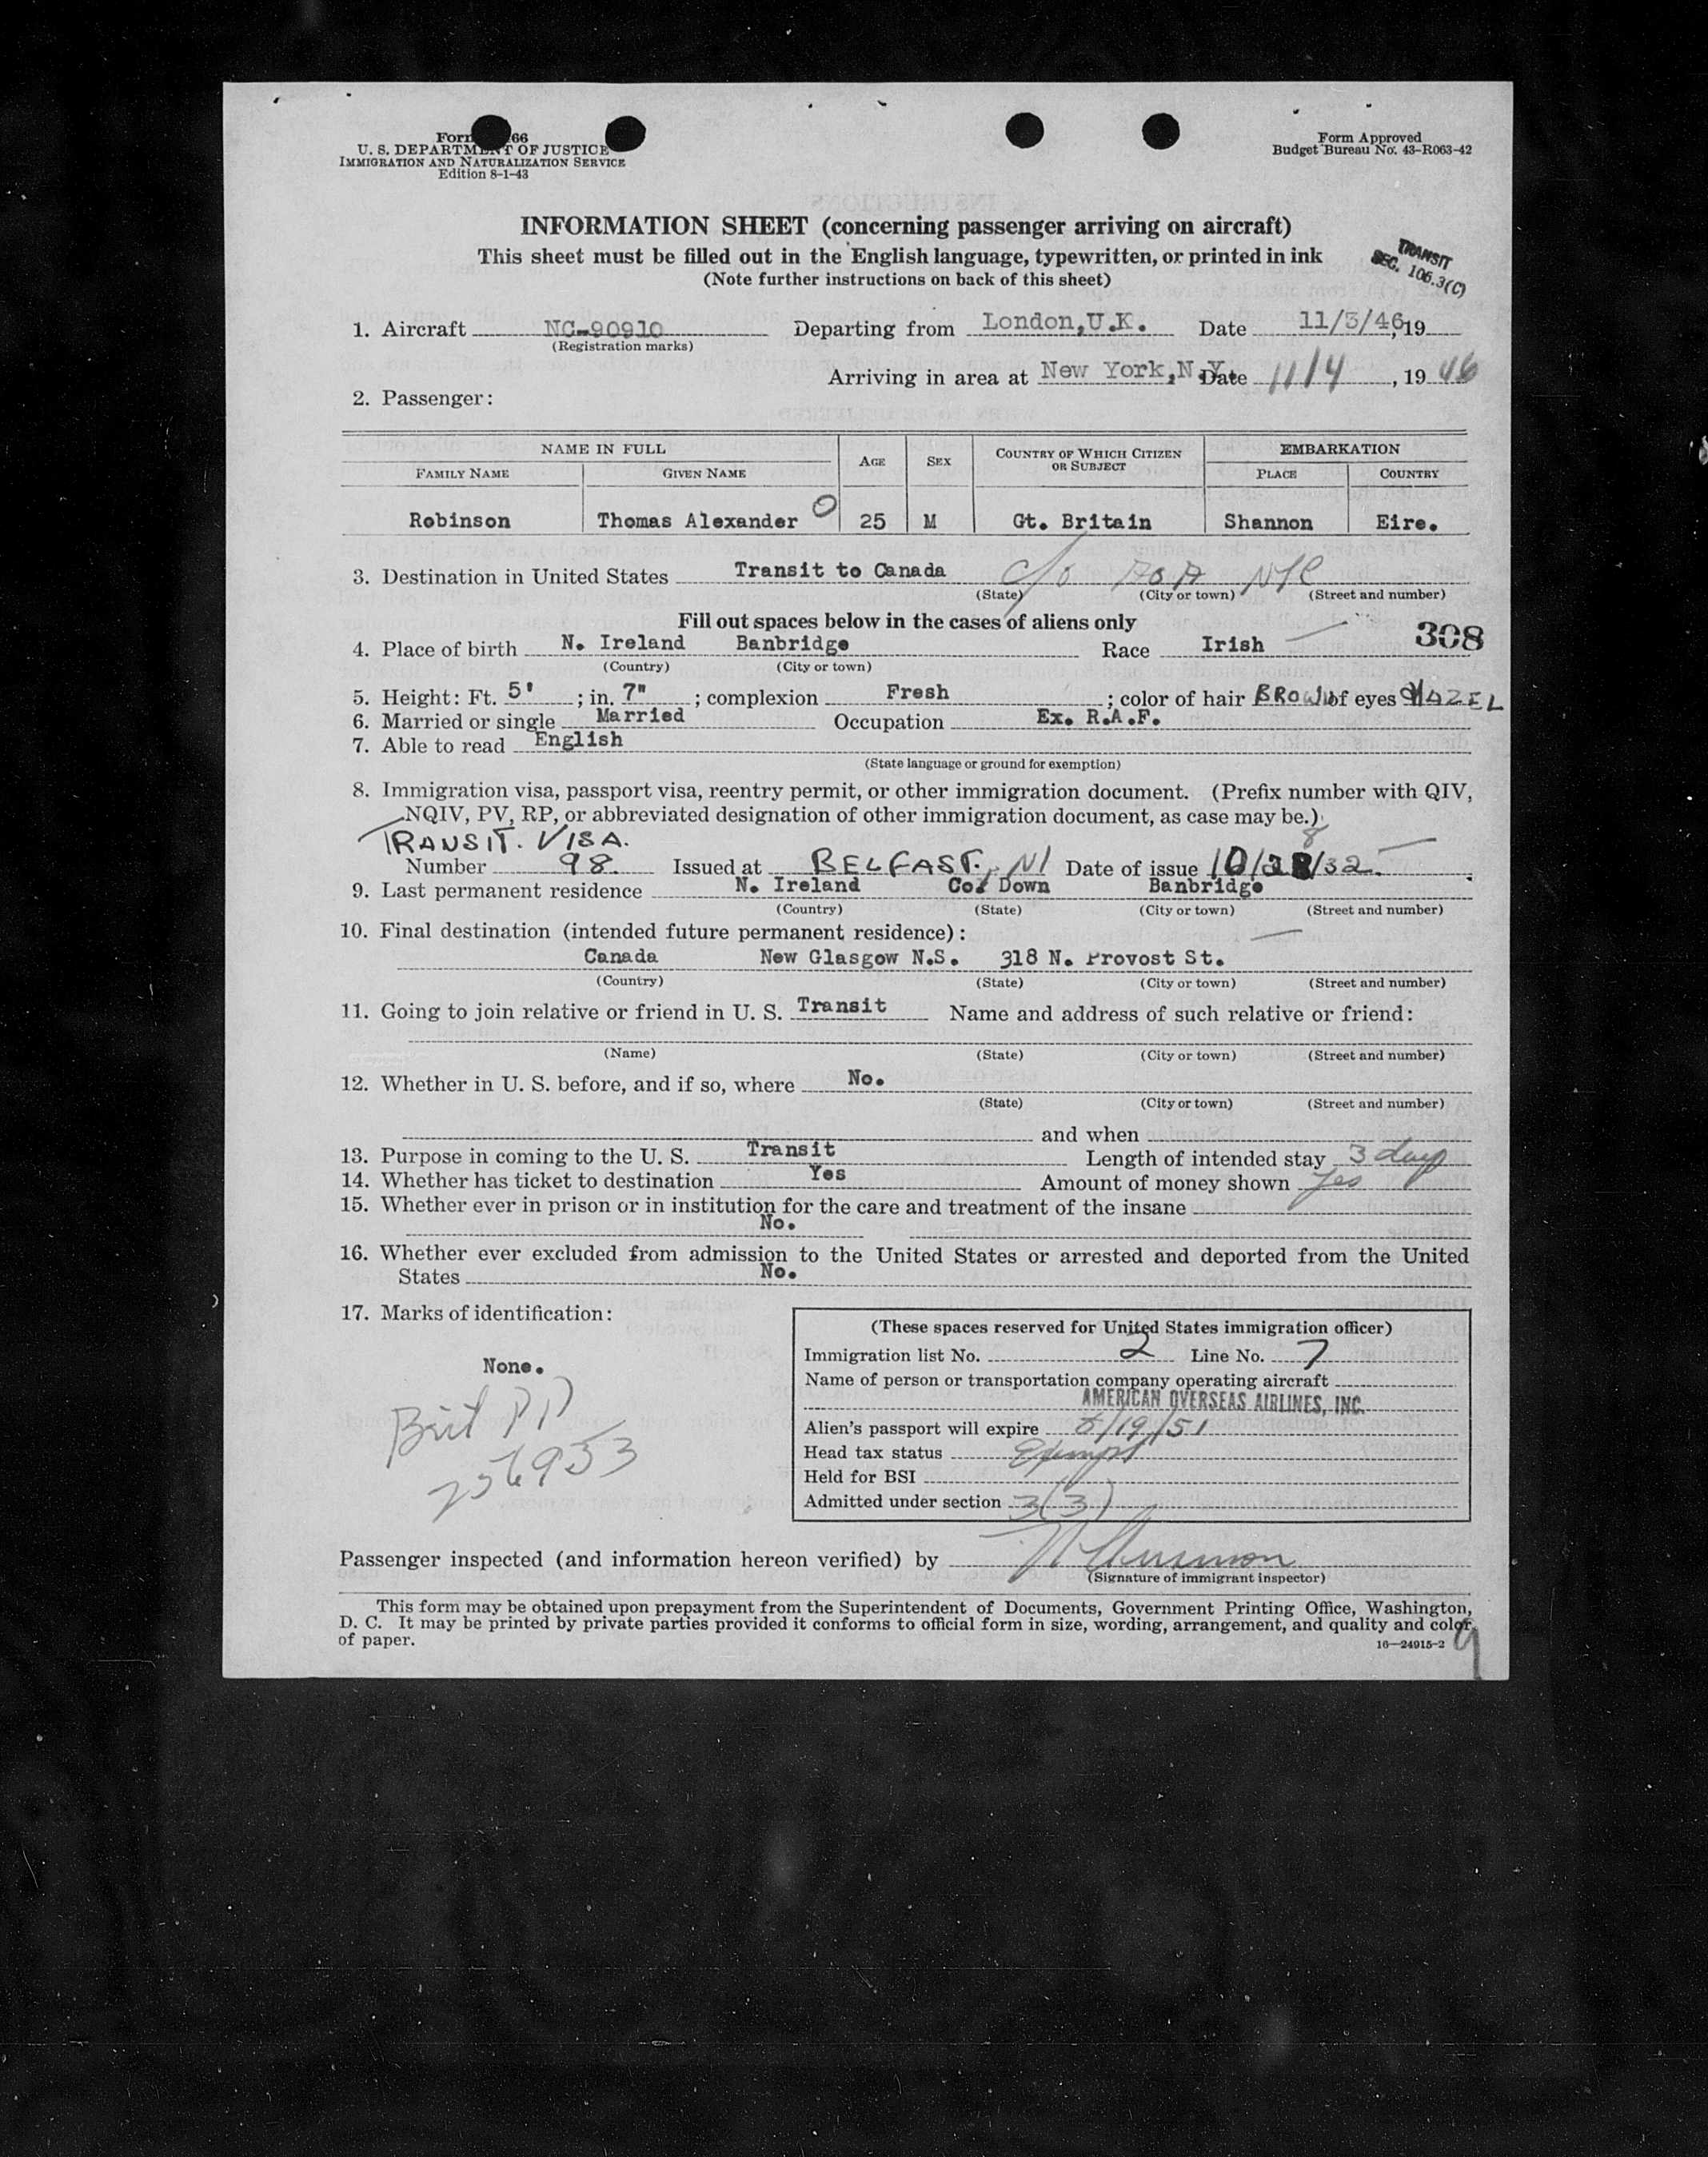 Form 66
U. S. DEPARTMENT OF JUSTICE
IMMIGRATION AND NATURALIZATION SERVICE
Edition 8-1-43
Form Approved
Budget Bureau No. 43-R063-42
INFORMATION SHEET (concerning passenger arriving on aircraft)
This sheet must be filled out in the English language, typewritten, or printed in ink
(Note further instructions on back of this sheet)
TRANSIT
SEC. 106.3(C)
1. Aircraft NC-90910 Departing from London,U.K. Date 11/3/46, 19
(Registration marks)
Arriving in area at New York,N.Y. Date 11/4, 19 46
2. Passenger:
NAME IN FULL AGE SEX COUNTRY OF WHICH CITIZEN OR SUBJECT EMBARKATION
FAMILY NAME GIVEN NAME PLACE COUNTRY
Robinson Thomas Alexander 25 M Gt. Britain Shannon Eire.
3. Destination in United States Transit to Canada c/o AOA NYC
(State) (City or town) (Street and number)
Fill out spaces below in the cases of aliens only
308
4. Place of birth N. Ireland Banbridge Race Irish
(Country) (City or town)
5. Height: Ft. 5' ; in. 7" ; complexion Fresh ; color of hair BROWN of eyes HAZEL
6. Married or single Married Occupation Ex. R.A.F.
7. Able to read English
(State language or ground for exemption)
8. Immigration visa, passport visa, reentry permit, or other immigration document. (Prefix number with QIV,
NQIV, PV, RP, or abbreviated designation of other immigration document, as case may be.)
TRANSIT. VISA.
Number 98. Issued at BELFAST, NI Date of issue 10/28/32.
9. Last permanent residence N. Ireland Co. Down Banbridge
(Country) (State) (City or town) (Street and number)
10. Final destination (intended future permanent residence):
Canada New Glasgow N.S. 318 N. Provost St.
(Country) (State) (City or town) (Street and number)
11. Going to join relative or friend in U. S. Transit Name and address of such relative or friend:
(Name) (State) (City or town) (Street and number)
12. Whether in U. S. before, and if so, where No.
(State) (City or town) (Street and number)
and when
13. Purpose in coming to the U. S. Transit Length of intended stay 3 days
14. Whether has ticket to destination Yes Amount of money shown Yes
15. Whether ever in prison or in institution for the care and treatment of the insane
No.
16. Whether ever excluded from admission to the United States or arrested and deported from the United
States No.
17. Marks of identification:
None.
Brit PP
(These spaces reserved for United States immigration officer)
Immigration list No. 2 Line No. 7
Name of person or transportation company operating aircraft
AMERICAN OVERSEAS AIRLINES, INC.
Alien's passport will expire /19/51
Head tax status Exempt
Held for BSI
Admitted under section 3(3)
Passenger inspected (and information hereon verified) by
(Signature of immigrant inspector)
This form may be obtained upon prepayment from the Superintendent of Documents, Government Printing Office, Washington,
D. C. It may be printed by private parties provided it conforms to official form in size, wording, arrangement, and quality and color
of paper.
16—24915-2
9